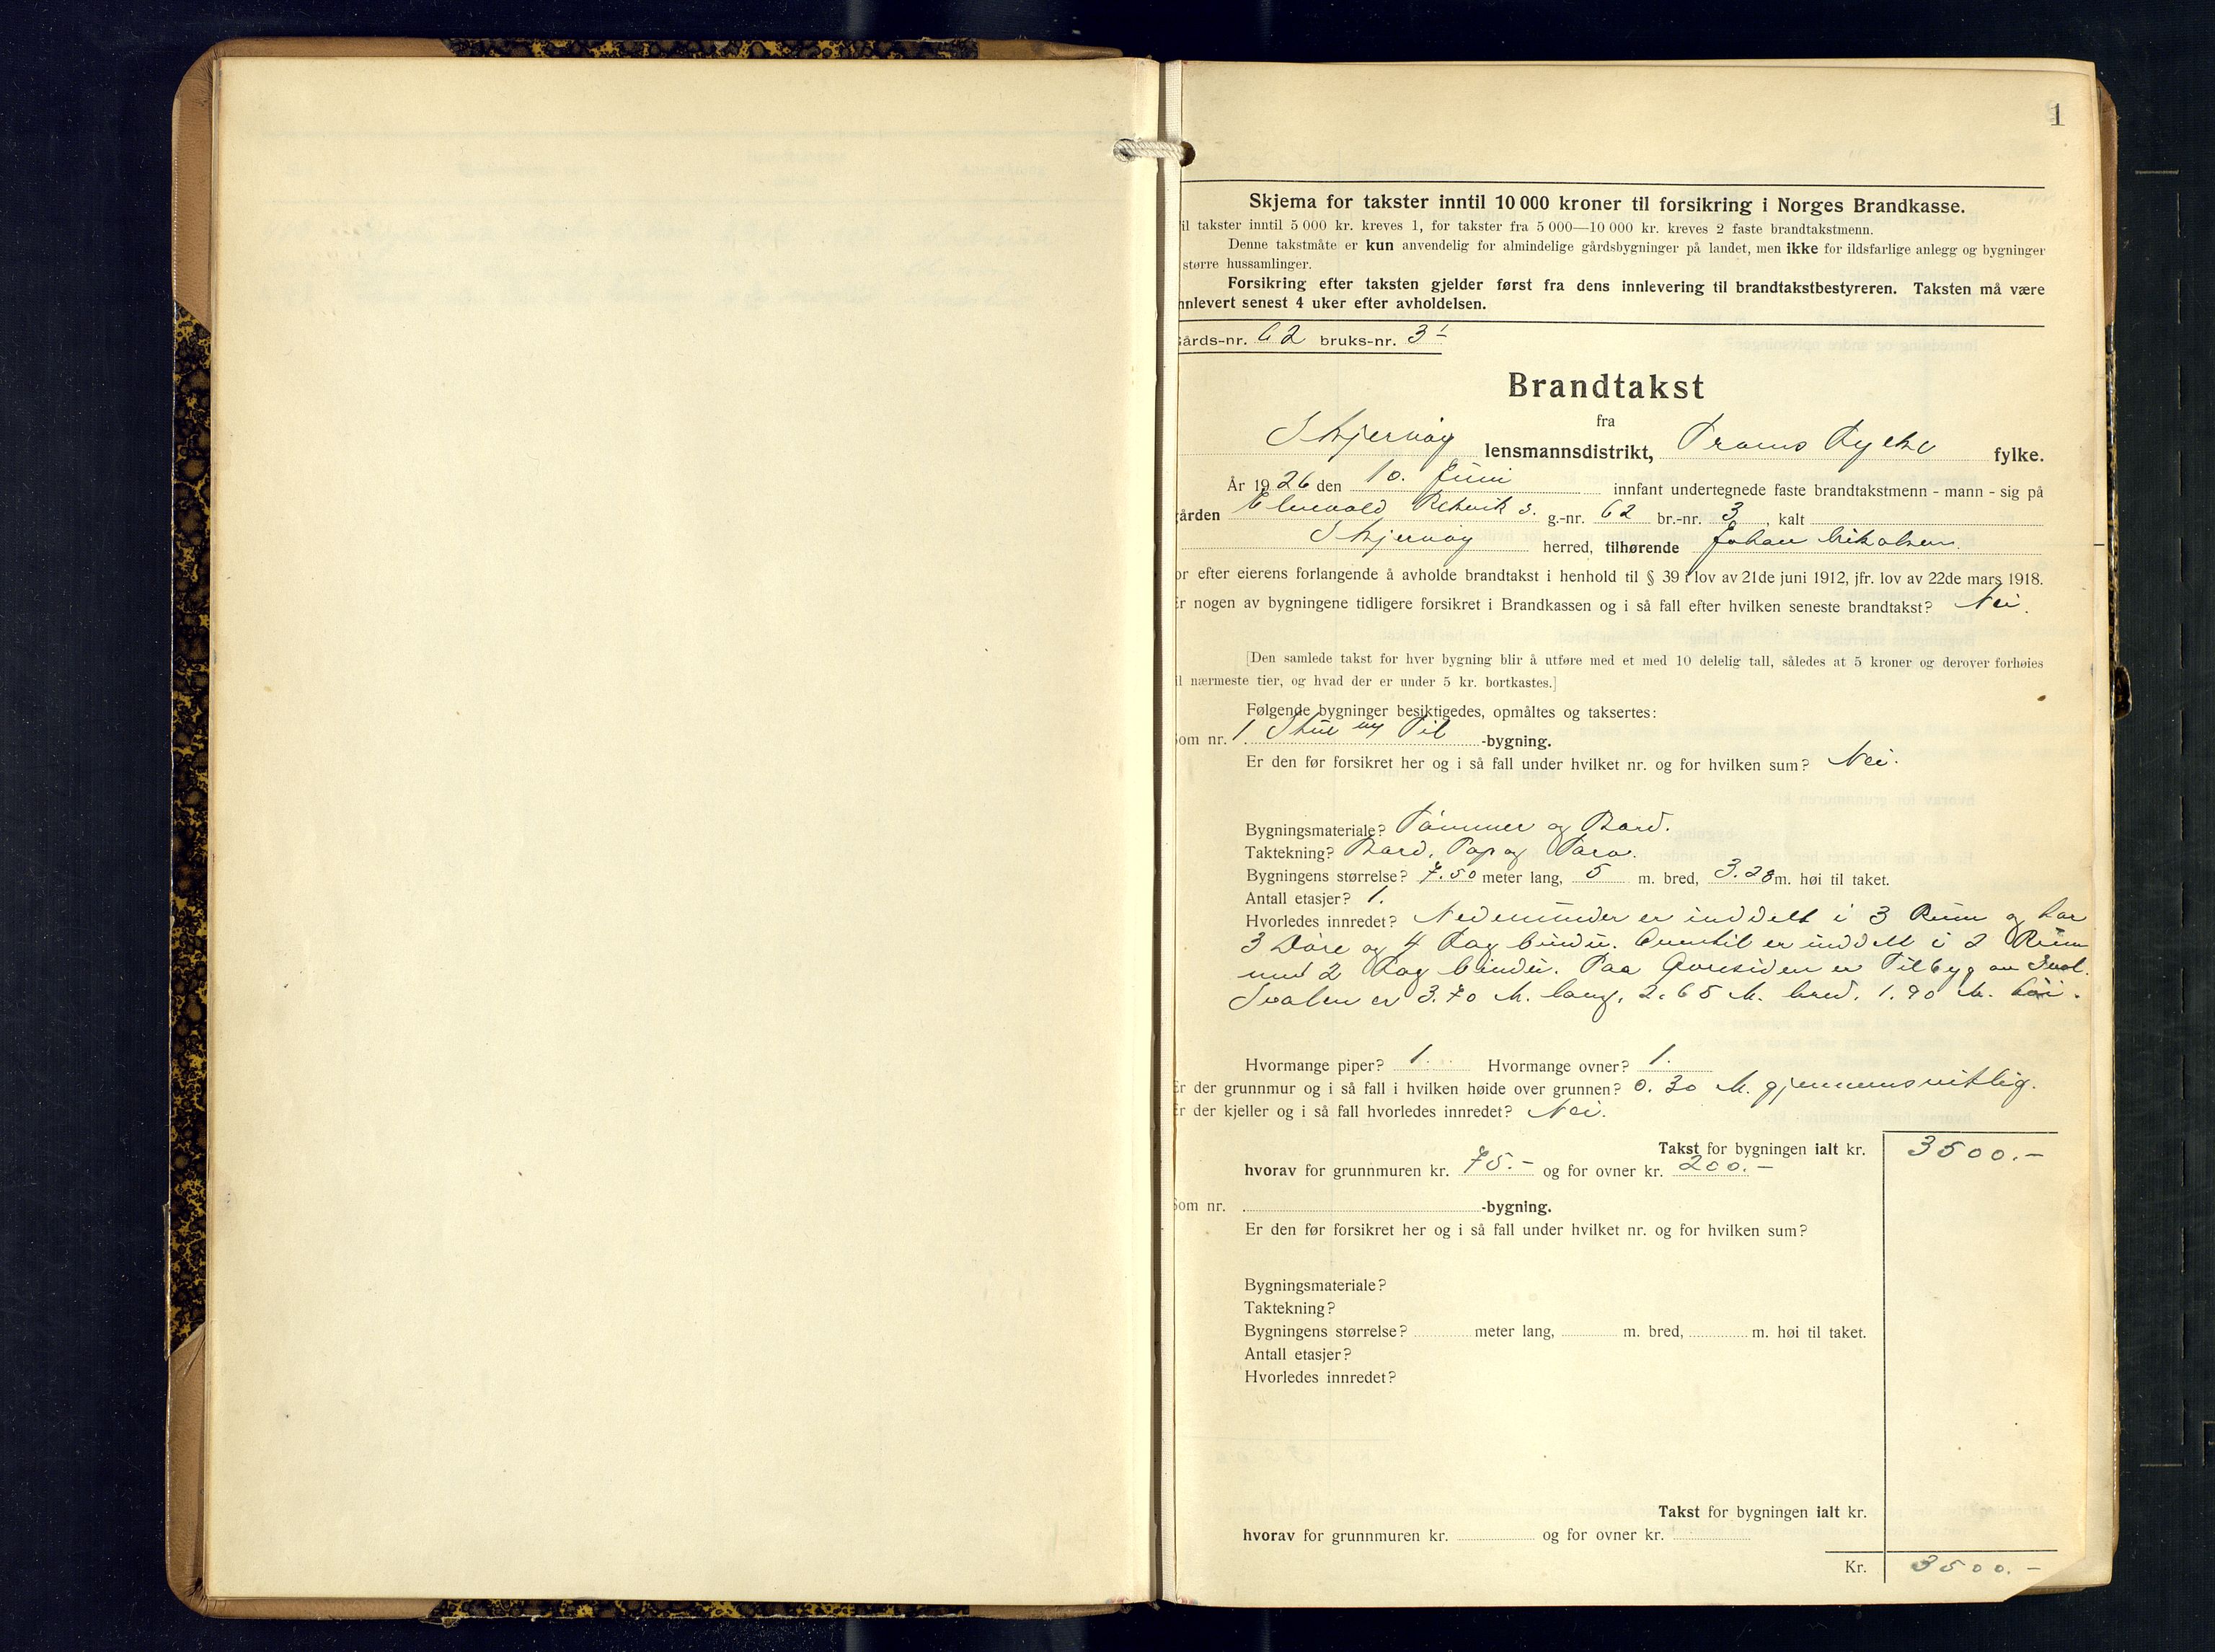 1
Skjema for takster inntil 10 000 kroner til forsikring i Norges Brandkasse.
il takster inntil 5 000 kr. kreves 1, for takster fra 5 000—10 000 kr. kreves 2 faste brandtakstmenn.
Denne takstmåte er kun anvendelig for almindelige gårdsbygninger på landet, men ikke for ildsfarlige anlegg og bygninger
større hussamlinger.
Forsikring efter taksten gjelder først fra dens innlevering til brandtakstbestyreren. Taksten må være
nnlevert senest 4 uker efter avholdelsen.
Gårds-nr. 62 bruks-nr. 3
Brandtakst
fra
Skjervøy lensmannsdistrikt, Troms Fylke fylke.
År 1926 den 10. Juni innfant undertegnede faste brandtakstmenn - mann - sig på
gården Elvevold g.-nr. 62 br.-nr. 3, kalt
Skjervøy herred, tilhørende Johan Nikolsen.
or efter eierens forlangende å avholde brandtakst i henhold til § 39 i lov av 21de juni 1912, jfr. lov av 22de mars 1918.
Er nogen av bygningene tidligere forsikret i Brandkassen og i så fall efter hvilken seneste brandtakst? Nei.
[Den samlede takst for hver bygning blir å utføre med et med 10 delelig tall, således at 5 kroner og derover forhøies
il nærmeste tier, og hvad der er under 5 kr. bortkastes.]
Følgende bygninger besiktigedes, opmåltes og taksertes:
Som nr. 1. Stue og Til -bygning.
Er den før forsikret her og i så fall under hvilket nr. og for hvilken sum? Nei.
Bygningsmateriale? Tømmer og Bord.
Taktekning? Bord, Pap og Torv.
Bygningens størrelse? 7.50 meter lang, 5 m. bred, 3.28 m. høi til taket.
Antall etasjer? 1.
Hvorledes innredet? Nedenunder er inddelt i 3 Rum og har
3 Døre og 4 Fag vindu. Oventil er inddelt i 2 Rum
med 2 Fag vindu. Paa Gavesiden er Tilbyg av Sval.
Svalen er 3.70 M. lang, 2.65 M. bred, 1.90 M. høi.
Hvormange piper? 1. Hvormange ovner? 1.
Er der grunnmur og i så fall i hvilken høide over grunnen? 0.30 M. gjennemsnitlig.
Er der kjeller og i så fall hvorledes innredet? Nei.
Takst for bygningen ialt kr. 3500.-
hvorav for grunnmuren kr. 75.- og for ovner kr. 200.-
Som nr. -bygning.
Er den før forsikret her og i så fall under hvilket nr. og for hvilken sum?
Bygningsmateriale?
Taktekning?
Bygningens størrelse? meter lang, m. bred, m. høi til taket.
Antall etasjer?
Hvorledes innredet?
Takst for bygningen ialt kr.
hvorav for grunnmuren kr. og for ovner kr.
Kr. 3500.-